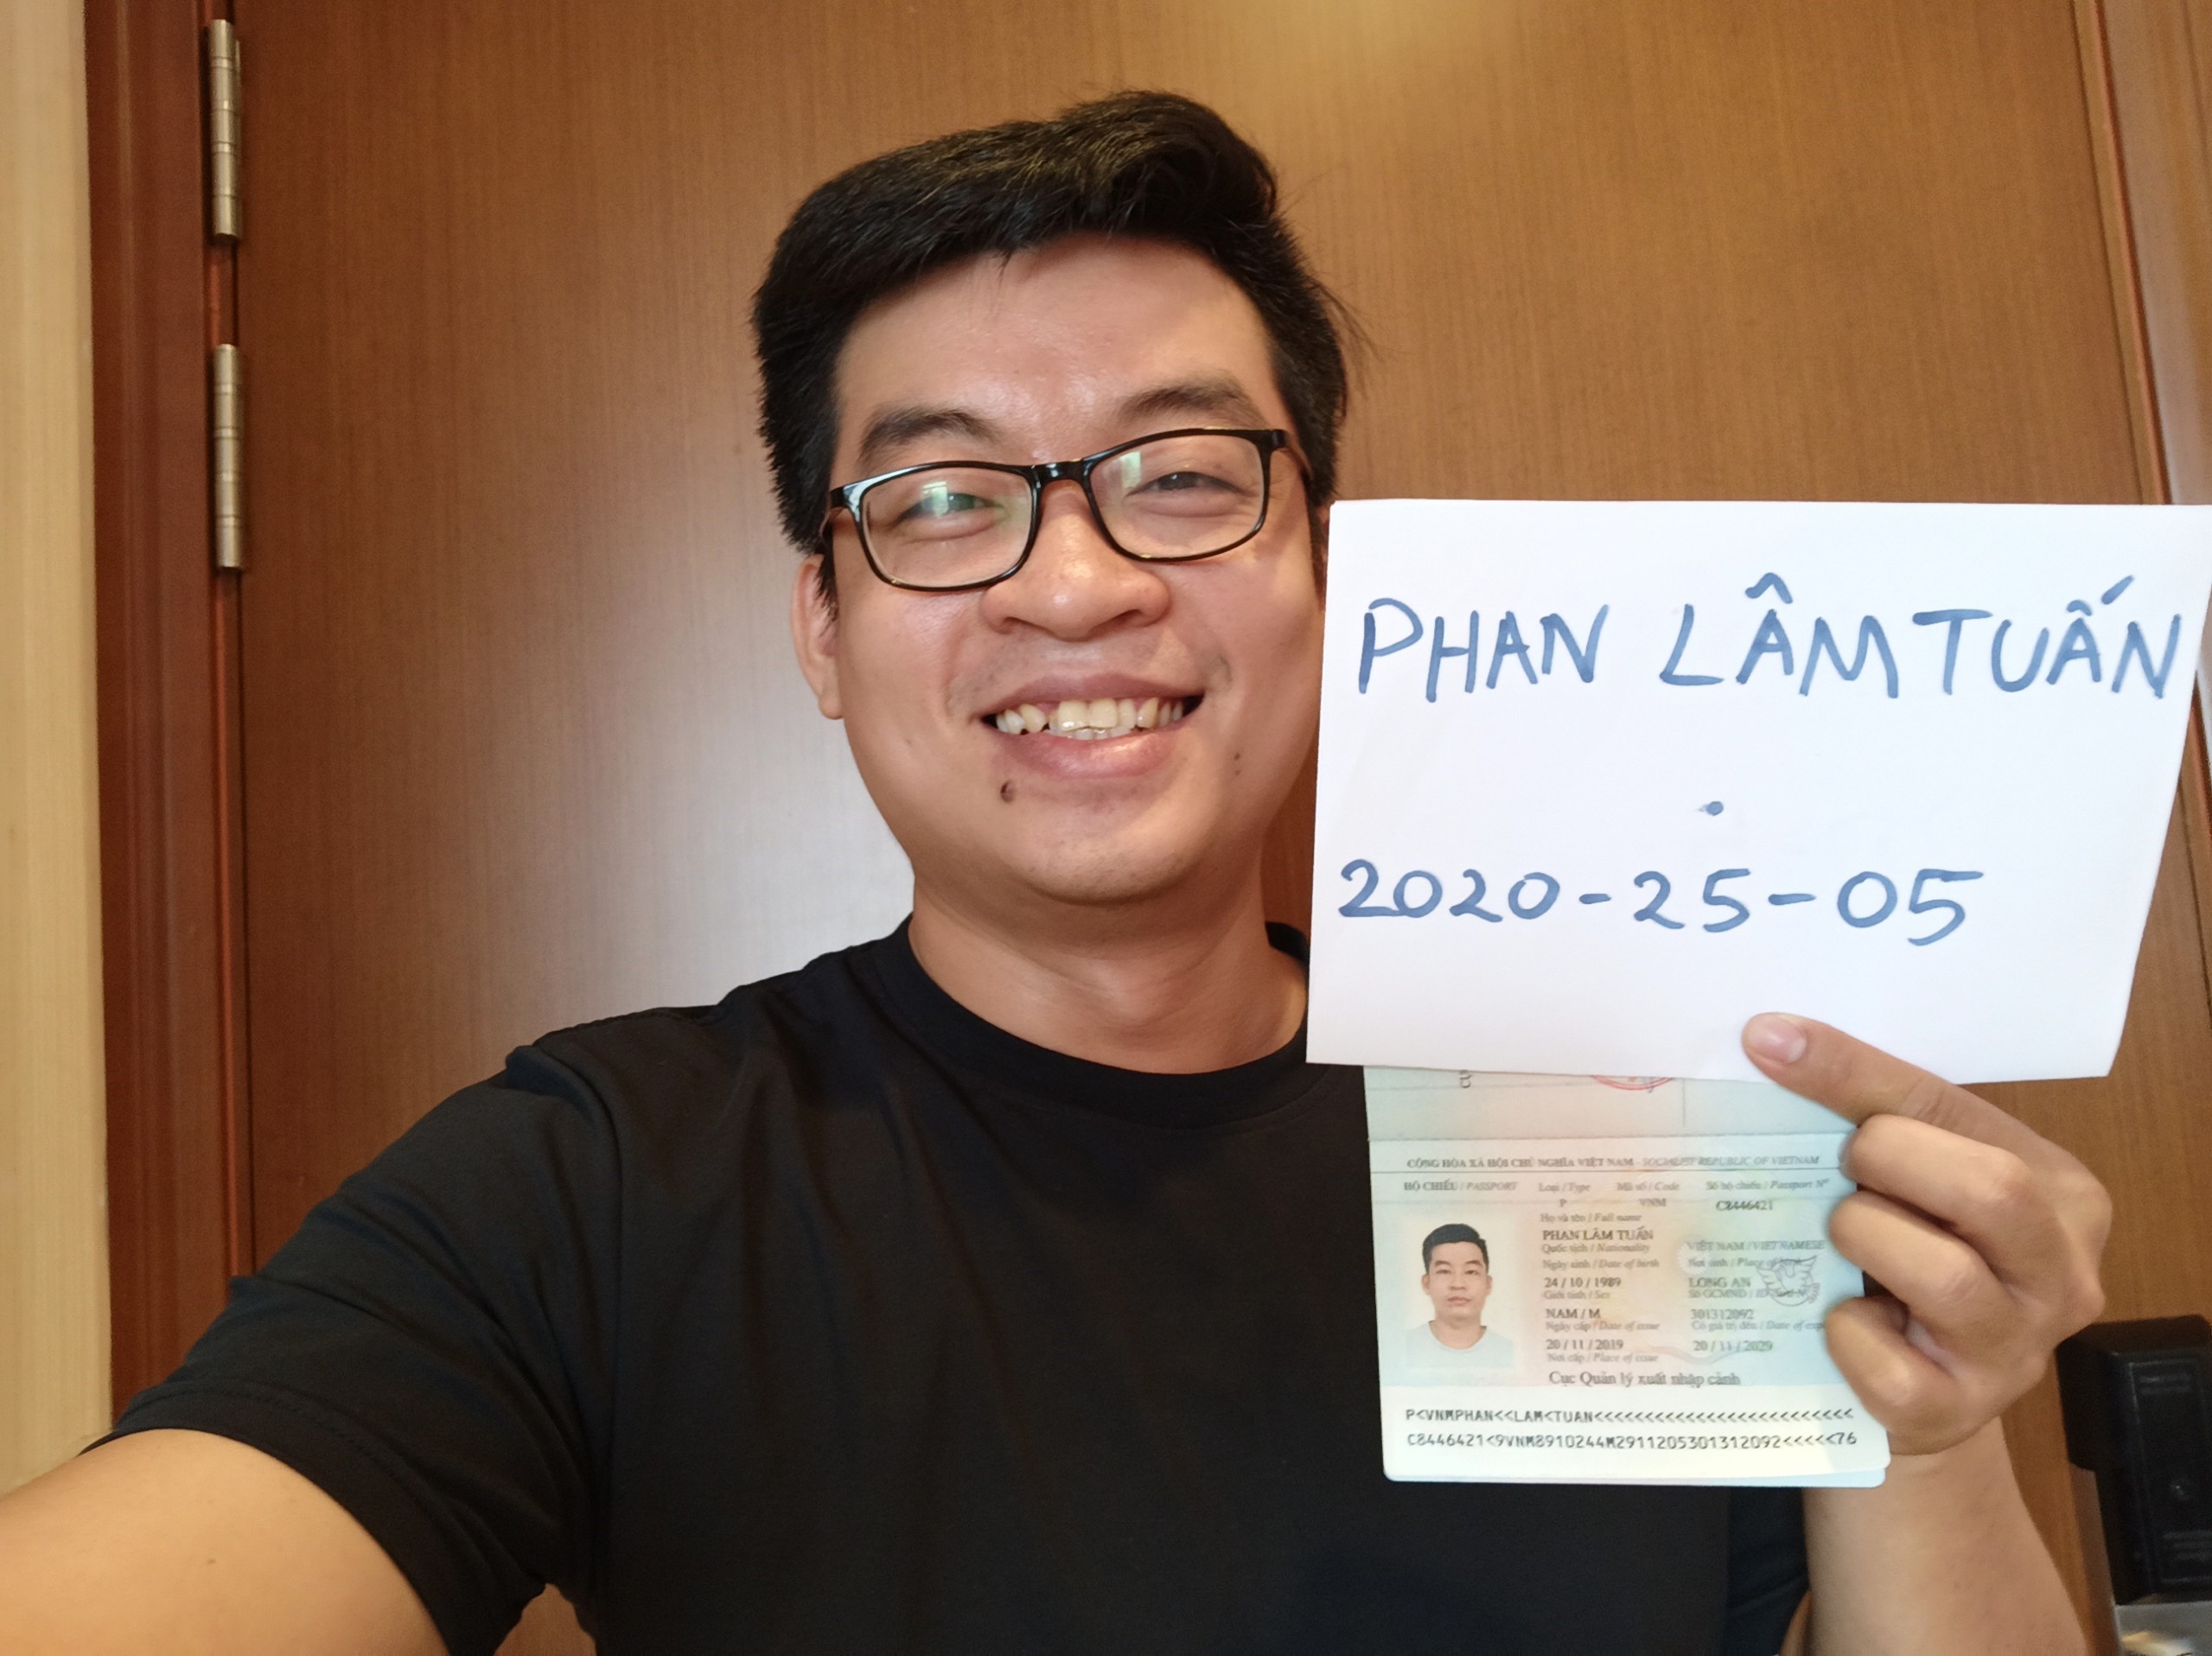 PHAN LÂM TUẤN
2020-25-05
CỘNG HÒA XÃ HỘI CHỦ NGHĨA VIỆT NAM - SOCIALIST REPUBLIC OF VIETNAM
HỘ CHIẾU / PASSPORT Loại / Type Mã số / Code Số hộ chiếu / Passport Nº
P VNM C8446421
Họ và tên / Full name
PHAN LÂM TUẤN
Quốc tịch / Nationality VIỆT NAM / VIETNAMESE
Ngày sinh / Date of birth Nơi sinh / Place of birth
24 / 10 / 1989 LONG AN
Giới tính / Sex Số GCMND / ID
NAM / M 301312092
Ngày cấp / Date of issue Có giá trị đến / Date of
20 / 11 / 2019 20 / 11 / 2029
Nơi cấp / Place of issue
Cục Quản lý xuất nhập cảnh
P<VNMPHAN<<LAM<TUAN<<<<<<<<<<<<<<<<<<<<<<<<<
C8446421<9VNM8910244M2911205301312092<<<<<76